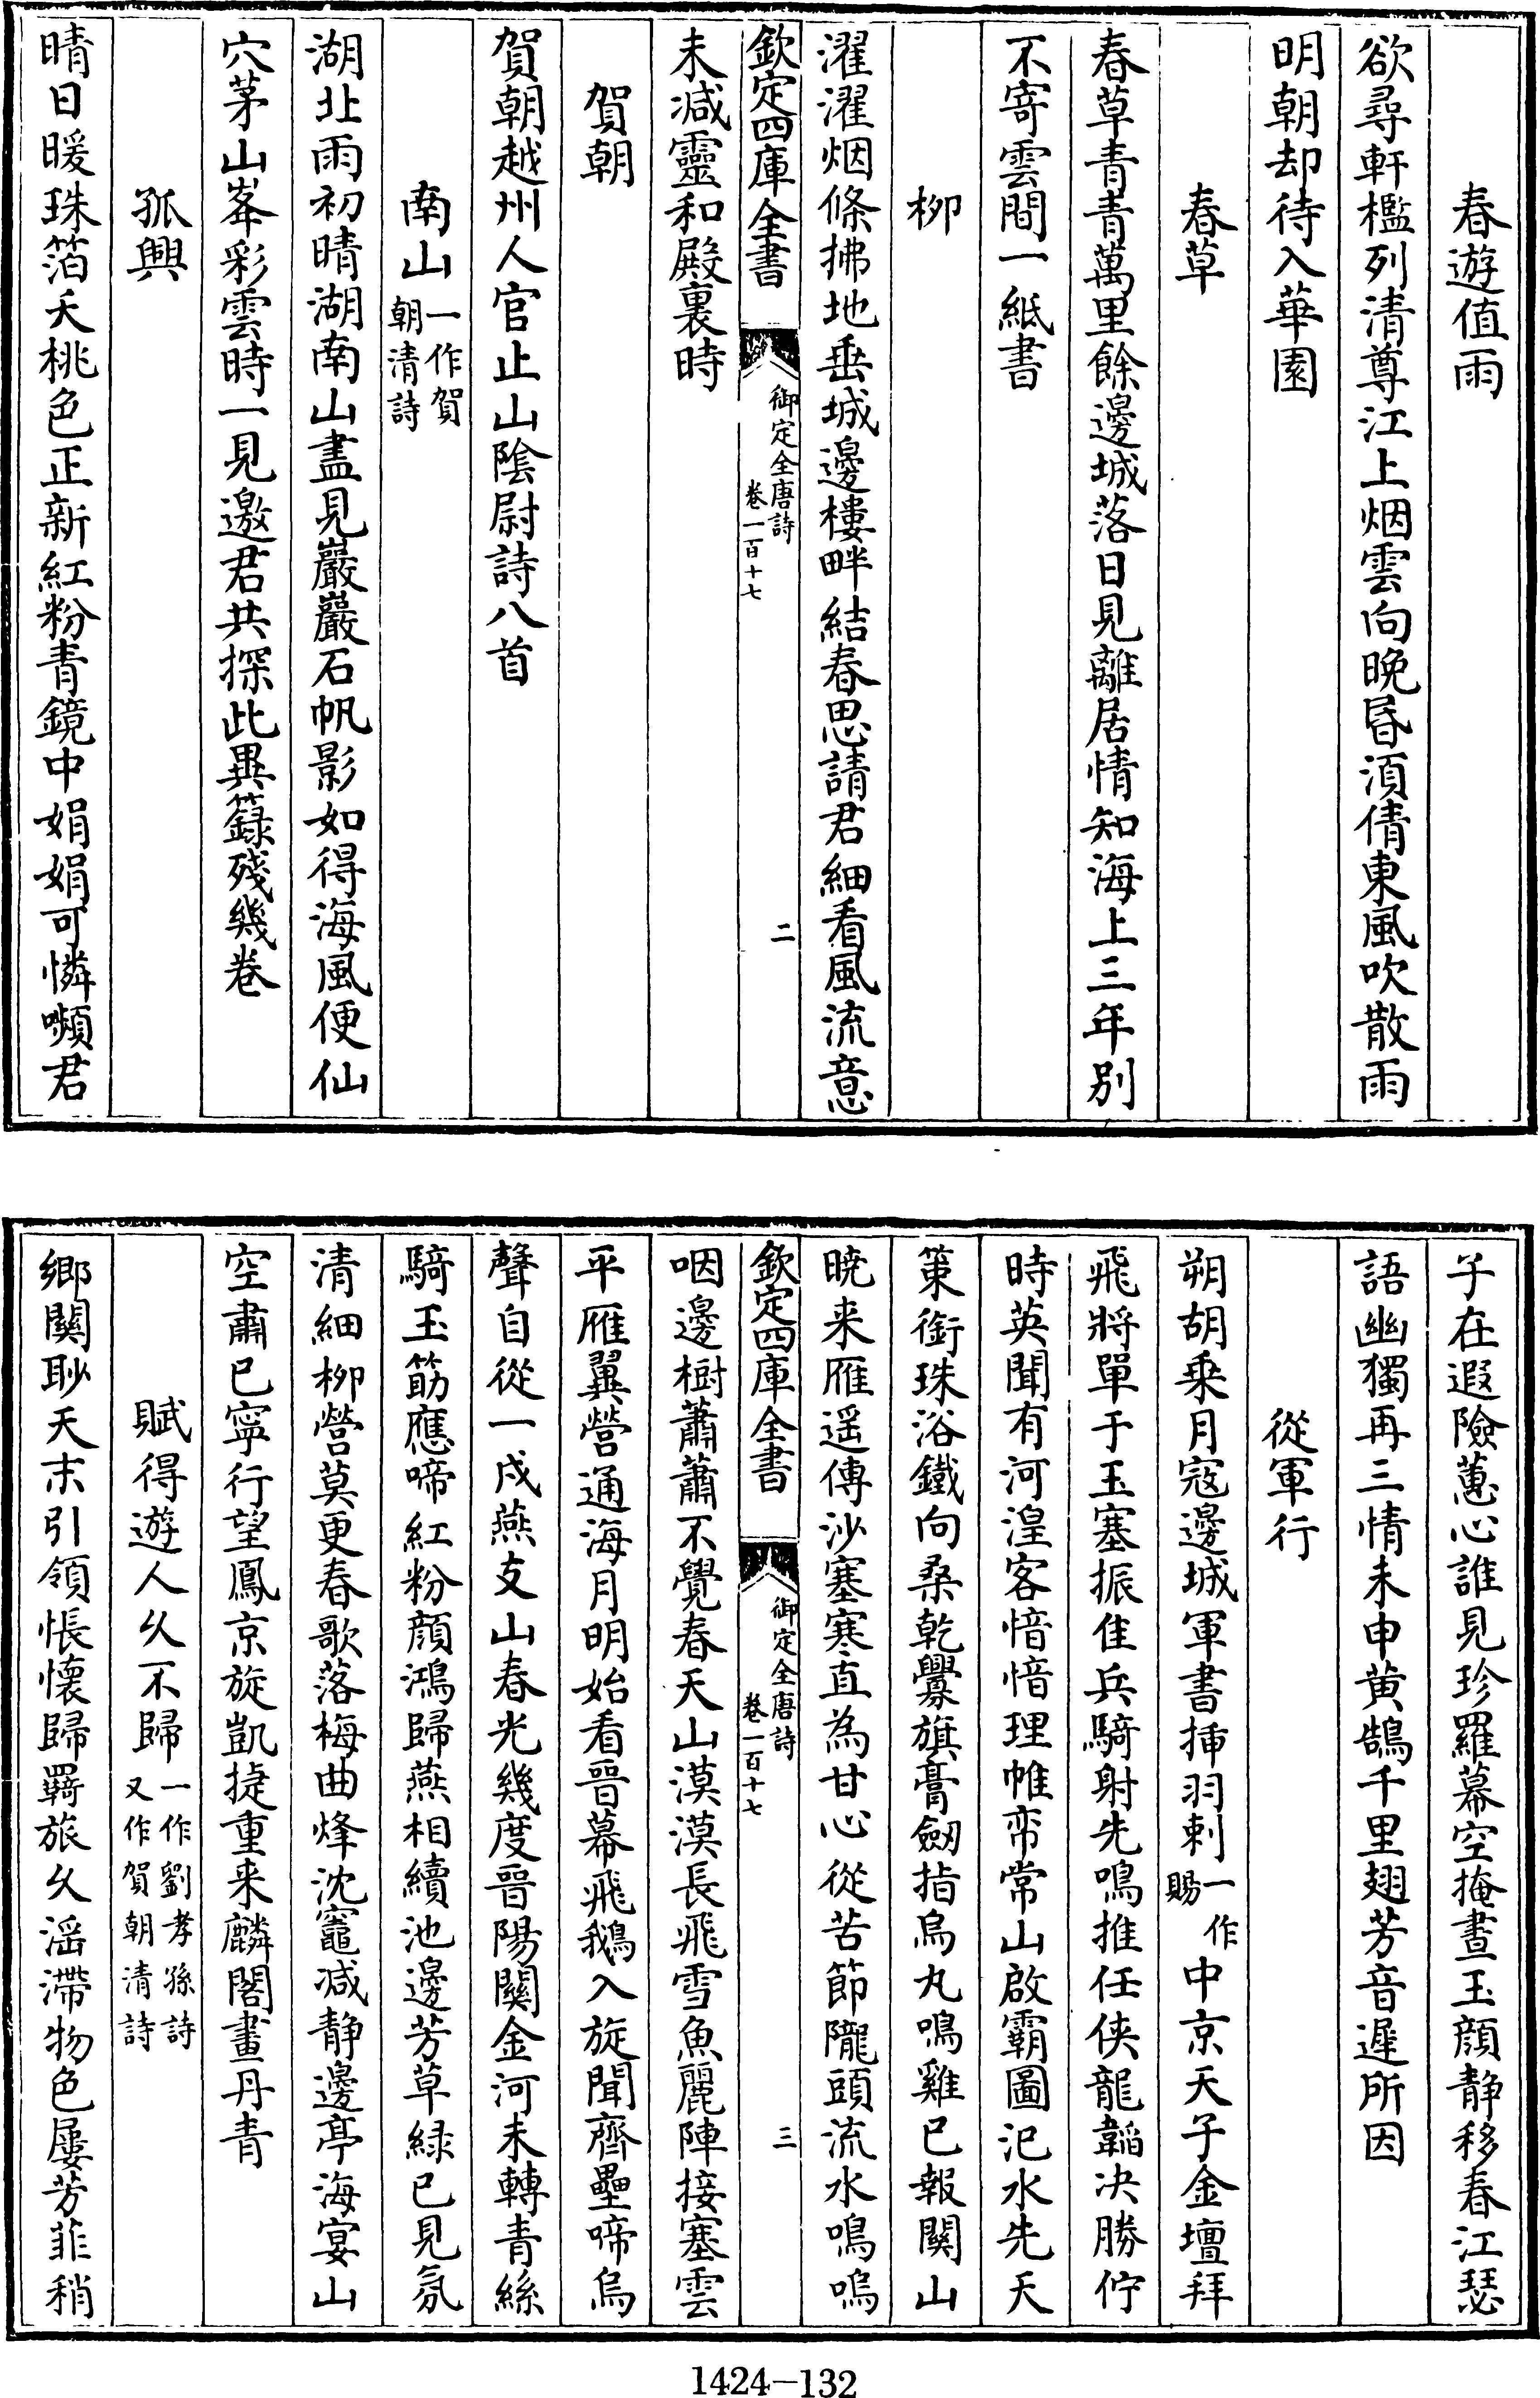 春遊值雨
欲尋軒檻列清尊江上烟雲向晚昏須倩東風吹散雨
明朝却待入華園
春草
春草青青萬里餘邊城落日見離居情知海上三年別
不寄雲間一紙書
柳
濯濯烟條拂地垂城邊樓畔結春思請君細看風流意
欽定四庫全書
御定全唐詩
卷一百十七
二
未減靈和殿裏時
賀朝
賀朝越州人官止山陰尉詩八首
南山一作賀朝清詩
湖北雨初晴湖南山盡見巖巖石帆影如得海風便仙
穴茅山峯彩雲時一見邀君共探此異籙殘幾卷
孤興
晴日暖珠箔夭桃色正新紅粉青鏡中娟娟可憐嚬君
子在遐險蕙心誰見珍羅幕空掩晝玉顔静移春江瑟
語幽獨再三情未申黄鵠千里翅芳音遲所因
從軍行
朔胡乗月寇邊城軍書挿羽刺一作賜中京天子金壇拜
飛將單于玉塞振佳兵騎射先鳴推任俠龍韜决勝佇
時英聞有河湟客愔愔理帷帟常山啟霸圖汜水先天
策銜珠浴鐵向桑乾釁旗膏劒指烏丸鳴雞已報關山
暁来雁遥傳沙塞寒直為甘心從苦節隴頭流水鳴嗚
欽定四庫全書
御定全唐詩
卷一百十七
三
咽邊樹蕭蕭不覺春天山漠漠長飛雪魚麗陣接塞雲
平雁翼營通海月明始看晉幕飛鵝入旋聞齊壘啼烏
聲自從一戍燕支山春光幾度晉陽關金河未轉青絲
騎玉筯應啼紅粉顔鴻歸燕相續池邊芳草緑已見氛
清細柳營莫更春歌落梅曲烽沈竈減静邊亭海宴山
空肅已寧行望鳳京旋凱捷重来麟閣畫丹青
賦得遊人久不歸一作劉孝孫詩又作賀朝清詩
鄉關眇天末引領悵懷歸羇旅久滛滯物色屢芳菲稍
1424-132